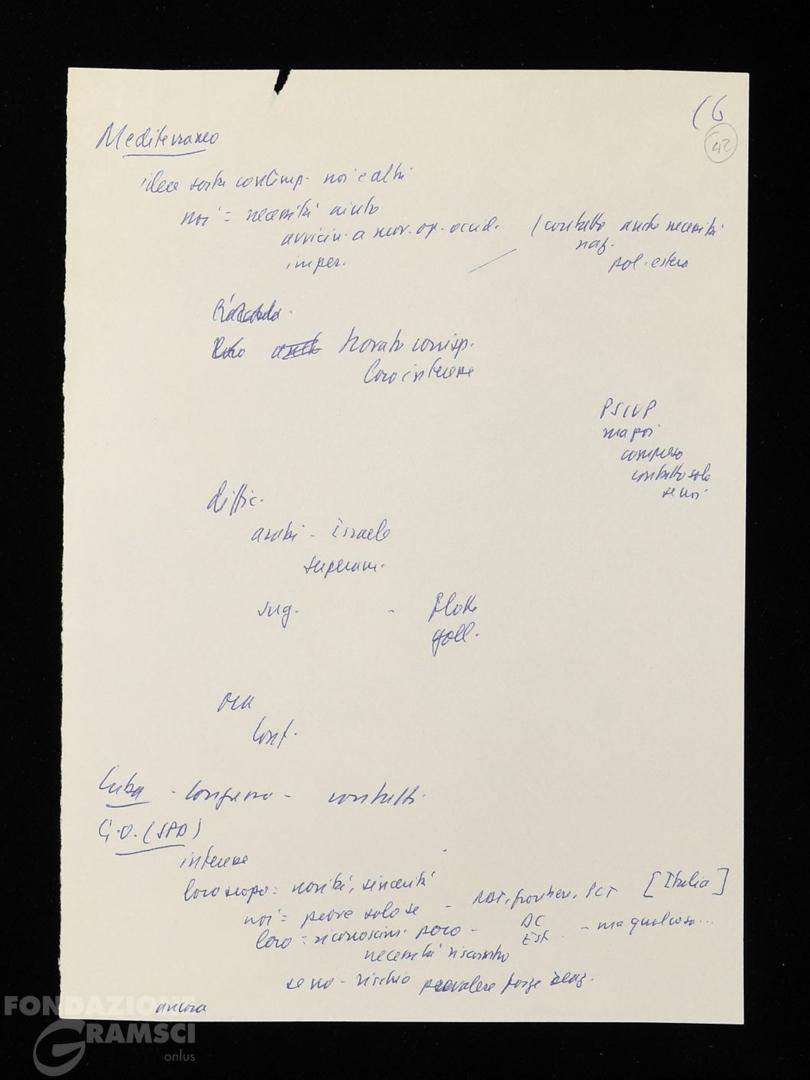 16
42
Mediterraneo
idea nostra contemp. noi e altri
noi = necessità aiuto
avvicin. a mov. op. occid. / contatto anche necessità
imper. naz.
pol. estera
trovato corrisp.
loro interesse
PSIUP
ma poi
compreso
contatto solo
se noi
diffic.
arabi - israele
superam.
Jug. - flotte
goll.
ora
conf.
Cuba - congresso - contatti.
G.O. (SPD)
interesse
loro scopo = novità, sincerità
noi = prove solo se - RDT, frontiere, PCT [Italia]
loro = riconoscim. poco - DC - ma qualcosa...
EST
necessità riscontro
se no - rischio prevalere forze reaz.
ancora
FONDAZIONE
GRAMSCI
onlus